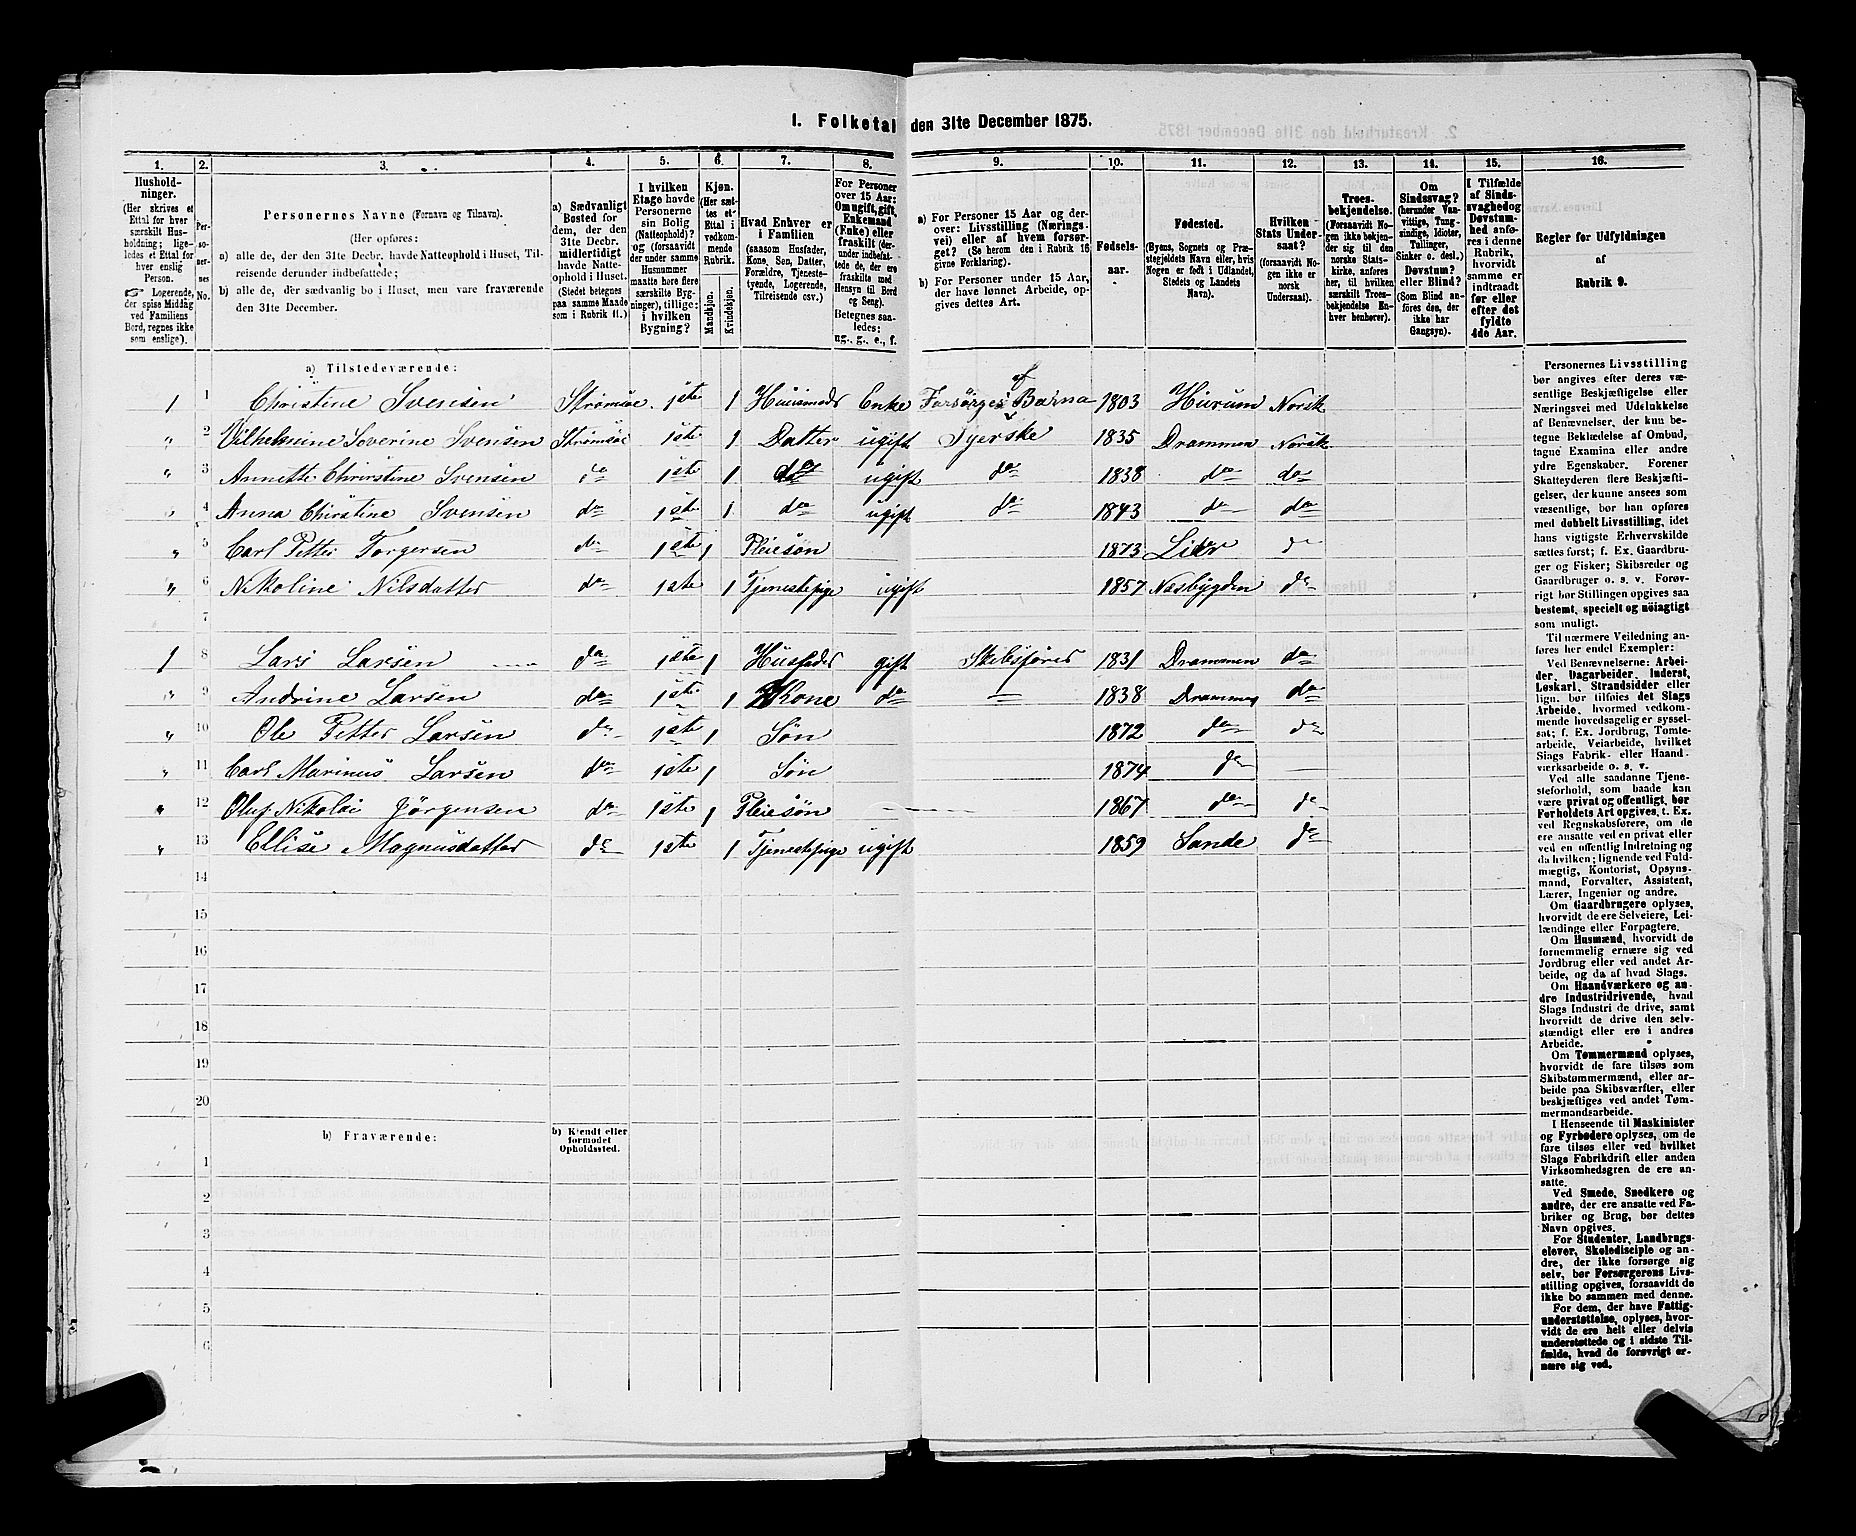 I. Folketal den 31te December 1875.
1. 2. 3. 4. 5. 6. 7. 8. 9. 10. 11. 12. 13. 14. 15. 16.
Husholdninger.
(Her skrives et Ettal for hver særskilt Husholdning; ligeledes et Ettal for hver enslig Person.
☞ Logerende, der spise Middag ved Familiens Bord, regnes ikke som enslige).
Personernes No.
Personernes Navne (Fornavn og Tilnavn).
(Her opføres:
a) alle de, der den 31te Decbr. havde Natteophold i Huset, Tilreisende derunder indbefattede;
b) alle de, der sædvanlig bo i Huset, men vare fraværende den 31te December.
a) Sædvanligt Bosted for dem, der den 31te Decbr. midlertidigt havde Natteophold i Huset. (Stedet betegnes paa samme Maade som i Rubrik 11.)
I hvilken Etage havde Personerne sin Bolig (Natteophold)? og (forsaavidt der under samme Husnummer maatte høre flere særskilte Bygninger), tillige: i hvilken Bygning?
Kjøn. (Her sættes et Ettal i vedkommende Rubrik.
Mandkjøn. Kvindekjøn.
Hvad Enhver er i Familien (saasom Husfader, Kone, Søn, Datter, Forældre, Tjenestetyende, Logerende, Tilreisende osv.)
For Personer over 15 Aar: Om ugift, gift, Enkemand (Enke) eller fraskilt (derunder indbefattede de, der ere fraskilte med Hensyn til Bord og Seng). Betegnes saaledes: ug., g., e., f.
a) For Personer 15 Aar og derover: Livsstilling (Næringsvei) eller af hvem forsørget? (Se herom den i Rubrik 16 givne Forklaring).
b) For Personer under 15 Aar, der have lønnet Arbeide, opgives dettes Art.
Fødselsaar.
Fødested. (Byens, Sognets og Præstegjeldets Navn eller, hvis Nogen er født i Udlandet, Stedets og Landets Navn).
Hvilken Stats Undersaat? (forsaavidt Nogen ikke er norsk Undersaat).
Troesbekjendelse. (Forsaavidt Nogen ikke bekjender sig til den norske Statskirke, anføres her, til hvilken særskilt Troesbekjendelse Enhver henhører).
Om Sindssvag? (herunder Vanvittige, Tungsindige, Idioter, Tullinger, Sinker o. desl.) Døvstum? eller Blind? (Som Blind anføres den, der ikke har Gangsyn).
I Tilfælde af Sindssvaghed og Døvstumhed anføres i denne Rubrik, hvorvidt samme er indtraadt før eller efter det fyldte 4de Aar.
Regler for Udfyldningen af Rubrik 9.
a) Tilstedeværende:
1 1 Christine Svensen Strømsøe 1ste 1 Huusmoder Enke Forsørges af Børna 1803 Hurum Norsk
" 2 Vilhelmine Soverine Svensen Strømsøe 1ste 1 Datter ugift Syerske 1835 Drammen Norsk
" 3 Annette Christine Svensen do 1ste 1 do ugift do 1838 do do
" 4 Anna Christine Svensen do 1ste 1 do ugift do 1843 do do
" 5 Carl Petter Torgersen do 1ste 1 Pleiesøn 1873 Lier do
" 6 Nikoline Nilsdatter do 1ste 1 Tjenestepige ugift 1857 Næsbygden do
7
1 8 Lars Larsen do 1ste 1 Husfader gift Skibsfører 1831 Drammen do
" 9 Andrine Larsen do 1ste 1 Kone do = 1838 Drammen do
" 10 Ole Petter Larsen do 1ste 1 Søn 1872 do do
" 11 Carl Marinus Larsen do 1ste 1 Søn 1874 do —
" 12 Oluf Nikolai Jörgensen do 1ste 1 Pleiesøn — 1867 do do
" 13 Ellise Magnusdatter do 1ste 1 Tjenestepige ugift 1859 Sande do
14
15
16
17
18
19
20
b) Fraværende: b) Kjendt eller formodet Opholdssted.
1
2
3
4
5
6
Personernes Livsstilling
bør angives efter deres væ-
sentlige Beskjæftigelse eller
Næringsvei med Udelukkelse
af Benævnelser, der kun be-
tegne Beklædelse af Ombud,
tagne Examina eller andre
ydre Egenskaber. Forener
Skatteyderen flere Beskjæfti-
gelser, der kunne ansees som
væsentlige, bør han opføres
med dobbelt Livsstilling, idet
hans vigtigste Erhvervskilde
sættes først; f. Ex. Gaardbru-
ger og Fisker; Skibsreder og
Gaardbruger o. s. v. Forøv-
rigt bør Stillingen opgives saa
bestemt, specielt og nøiagtigt
som muligt.
Til nærmere Veiledning an-
føres her endel Exempler:
Ved Benævnelserne: Arbei-
der, Dagarbeider, Inderst,
Løskarl, Strandsidder eller
lign. bør tilføies det Slags
Arbeide, hvormed vedkom-
mende hovedsagelig er syssel-
sat; f. Ex. Jordbrug, Tomte-
arbeide, Veiarbeide, hvilket
Slags Fabrik- eller Haand-
værksarbeide o. s. v.
Ved alle saadanne Tjene-
steforhold, som baade kan
være privat og offentligt, bør
Forholdets Art opgives, t. Ex.
ved Regnskabsførere, om de
ere ansatte ved en privat eller
ved en offentlig Indretning og
da hvilken; lignende ved Fuld-
mægtig, Kontorist, Opsyns-
mand, Forvalter, Assistent,
Lærer, Ingeniør og andre.
Om Gaardbrugere oplyses,
hvorvidt de ere Selveiere, Lei-
lændinge eller Forpagtere.
Om Husmænd, hvorvidt de
fornemmelig ernære sig ved
Jordbrug eller ved andet Ar-
beide, og da af hvad Slags.
Om Haandværkere og an-
dre Industridrivende, hvad
Slags Industri de drive, samt
hvorvidt de drive den selv-
stændigt eller ere i andres
Arbeide.
Om Tømmermænd oplyses,
hvorvidt de fare tilsøs som
Skibstømmermænd, eller ar-
beide paa Skibsværfter, eller
beskjæftiges ved andet Tøm-
mermandsarbeide.
I Henseende til Maskinister
og Fyrbødere oplyses, om de
fare tilsøs eller ved hvilket
Slags Fabrikdrift eller anden
Virksomhedsgren de ere an-
satte.
Ved Smede, Snedkere og
andre, der ere ansatte ved Fa-
briker og Brug, bør dettes
Navn opgives.
For Studenter, Landbrugs-
elever, Skoledisciple og an-
dre, der ikke forsørge sig
selv, bør Forsørgerens Livs-
stilling opgives, forsaavidt de
ikke bo sammen med denne.
For dem, der have Fattig-
understøttelse, oplyses, hvor-
vidt de ere helt eller delvis
understøttede og i sidste Til-
fælde, hvad de forøvrigt er-
nære sig ved.